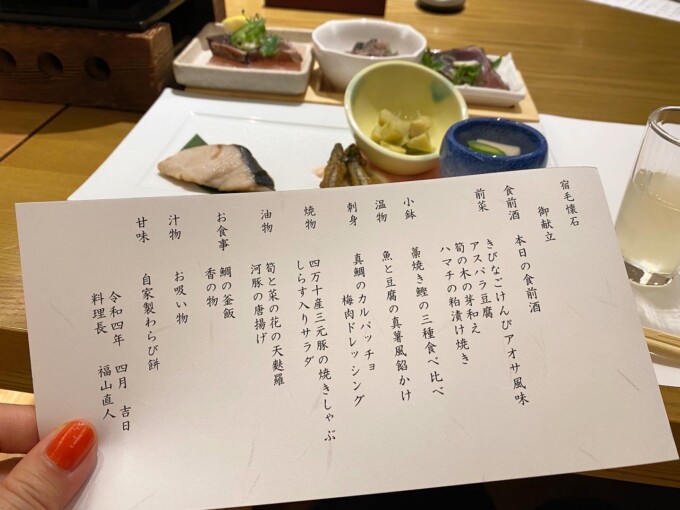 宿毛懐石
御献立
食前酒 本日の食前酒
前菜 きびなごけんぴアオサ風味
アスパラ豆腐
筍の木の芽和え
ハマチの粕漬け焼き
小鉢 藁焼き鰹の三種食べ比べ
温物 魚と豆腐の真薯風餡かけ
刺身 真鯛のカルパッチョ
梅肉ドレッシング
焼物 四万十産三元豚の焼きしゃぶ
しらす入りサラダ
油物 筍と菜の花の天麩羅
河豚の唐揚げ
お食事 鯛の釜飯
香の物
汁物 お吸い物
甘味 自家製わらび餅
令和四年 四月 吉日
料理長 福山直人